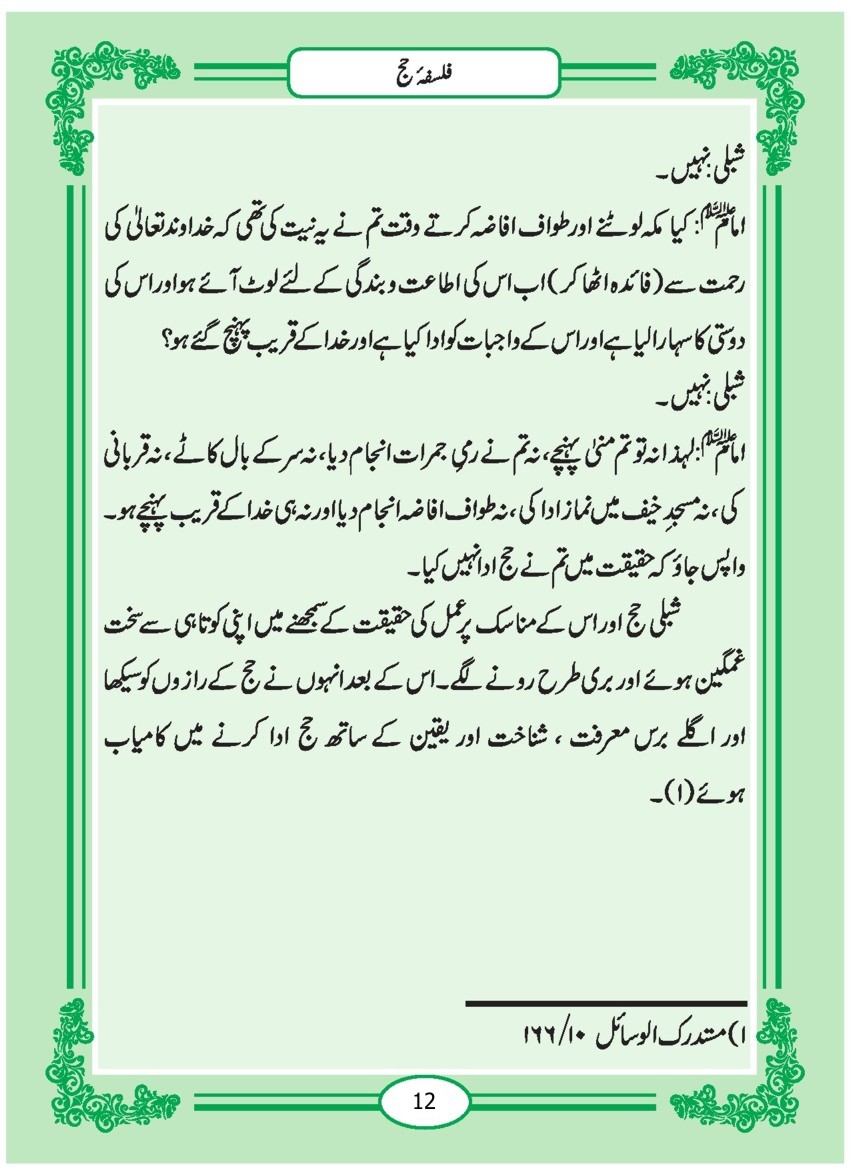 فلسفۂ حج
شبلی: نہیں۔
امامؑ: کیا مکہ لوٹنے اور طواف افاضہ کرتے وقت تم نے یہ نیت کی تھی کہ خداوند تعالیٰ کی
رحمت سے (فائدہ اٹھا کر) اب اس کی اطاعت و بندگی کے لئے لوٹ آئے ہو اور اس کی
دوستی کا سہارا لیا ہے اور اس کے واجبات کو ادا کیا ہے اور خدا کے قریب پہنچ گئے ہو؟
شبلی: نہیں۔
امامؑ: لہذا نہ تو تم منیٰ پہنچے، نہ تم نے رمیِ جمرات انجام دیا، نہ سر کے بال کاٹے، نہ قربانی
کی، نہ مسجدِ خیف میں نماز ادا کی، نہ طواف افاضہ انجام دیا اور نہ ہی خدا کے قریب پہنچے ہو۔
واپس جاؤ کہ حقیقت میں تم نے حج ادا نہیں کیا۔
شبلی حج اور اس کے مناسک پر عمل کی حقیقت کے سمجھنے میں اپنی کوتاہی سے سخت
غمگین ہوئے اور بری طرح رونے لگے۔ اس کے بعد انہوں نے حج کے رازوں کو سیکھا
اور اگلے برس معرفت ، شناخت اور یقین کے ساتھ حج ادا کرنے میں کامیاب
ہوئے (۱)۔
۱) مستدرک الوسائل ۱۶۶/۱۰
12